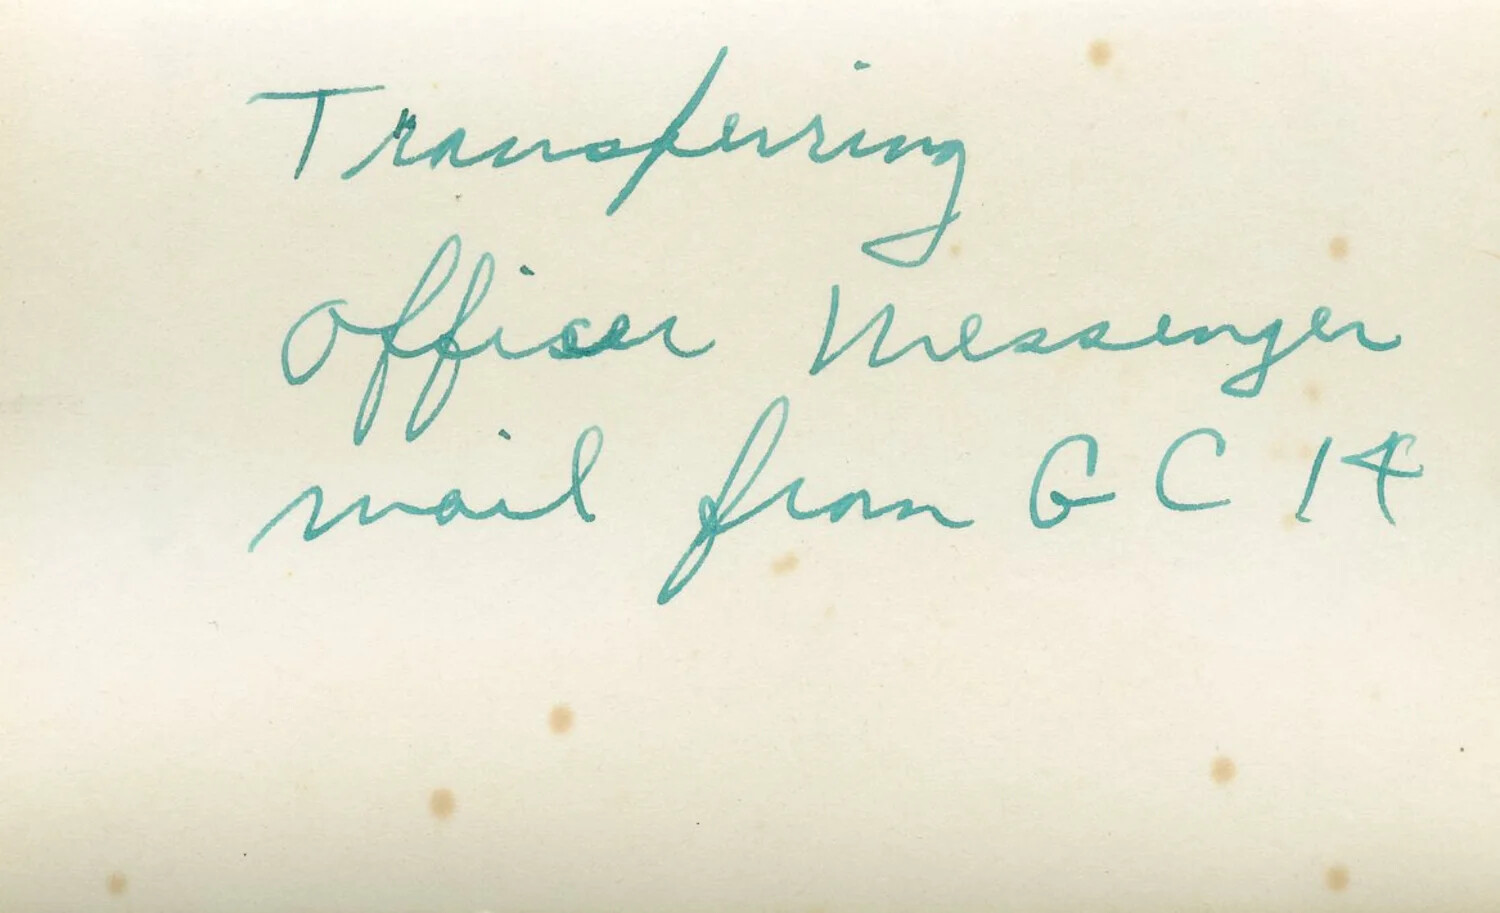 Transferring
Officer Messenger
mail from GC 14